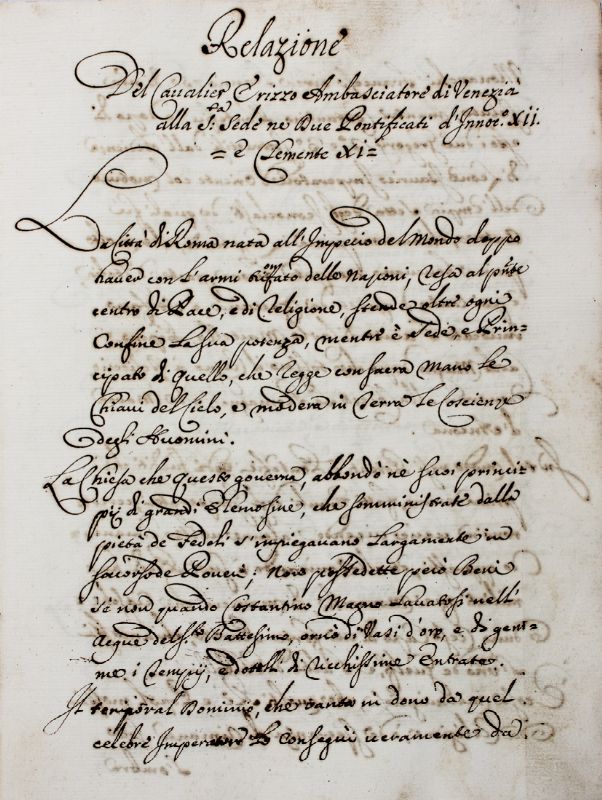 Relazione
Del Cavalier Erizzo Ambasciatore di Venezia
alla S.ta Sede ne Due Pontificati d'Innoc.o XII.
= e Clemente XI =
La Città di Roma nata all'Impecio del Mondo doppo
haver con l'armi trionfato delle Nazioni, resa al p̃nte
centro di Pace, e di Religione, stende oltre ogni
Confine la sua potenza, mentre è Sede, e Prin-
cipato di quello, che regge con sacra Mano le
Chiavi del Cielo, e modera in terra le Coscienze
degli Huomini.
La Chiesa che questo governa, abbondò nè suoi princi-
pij di grandi Elemosine, che somministrate dalla
pietà de Fedeli s'impiegavano largamente in
soccorso de Poveri; Non possedette però Beni
se non quando Costantino Magno lavatosi nell'
Acque del S.to Battesimo, ornò di Vasi d'oro, e di gem-
me i Tempij, e dotolli di ricchissime Entrate.
Il temporal Dominio, che vanta in dono da quel
celebre Imperatore lo conseguì veramente da